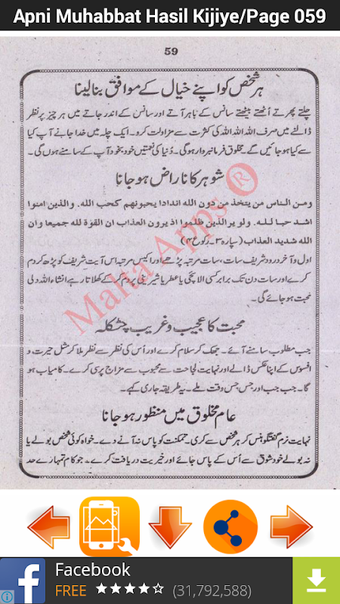 Apni Muhabbat Hasil Kijiye/Page 059
59
ہر شخص کو اپنے خیال کے موافق بنا لینا
چلتے پھرتے اُٹھتے بیٹھتے سانس کے باہر آتے اور سانس کے اندر جاتے میں ہر چیز پر نظر
ڈالنے میں صرف اللہ اللہ اللہ کی کثرت سے مزاولت کرو۔ ایک چلہ میں خدا جانے آپ کیا
سے کیا ہو جائیں گے۔ مخلوق فرمانبردار ہوگی۔ دُنیا کی نعمتیں خود بخود آپ کے سامنے ہوں گی۔
شوہر کا ناراض ہو جانا
ومن الناس من يتخذ من دون الله اندادا يحبونهم كحب الله. والذين امنوا
اشد حبا لله. ولو ير الذين ظلموا اذ يرون العذاب ان القوة لله جميعا وان
الله شديد العذاب (پارہ ۲۔ رکوع ۴)
اول و آخر درود شریف سات، سات مرتبہ پڑھے اور اکیس مرتبہ اس آیت شریف کو پڑھ کر دم
کرے اور سات دن تک برابر کسی الائچی یا عطر یا شیرینی پر دم کر کے کھلاتا رہے انشاء اللہ دلی
محبت ہو جائے گی۔
محبت کا عجیب و غریب چٹکلہ
جب مطلوب سامنے آئے۔ جھک کر سلام کرے اور اس کی نظر سے نظر ملا کر مثل حیرت و
افسوس کے اپنا عکس ڈالے اور نہایت لجاجت سے محبوب سے مزاج پرسی کرے۔ کامیاب ہو
گا۔ جب جب اور جس جس وقت ملے۔ یہ طریقہ جاری رکھے۔
عام مخلوق میں منظور ہو جانا
نہایت نرم گفتگو ہنس کر ہر شخص سے کرے۔ تمکنت کو پاس نہ آنے دے۔ خواہ کوئی شخص بولے یا
نہ بولے خود شوق سے اُس کے پاس جائے اور خیریت دریافت کرے۔ جو کام تمہارے حد
Maha Apps ®
Facebook
FREE (31,792,588)